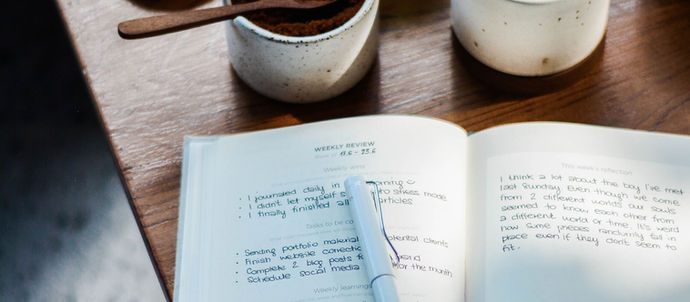 WEEKLY REVIEW
WEEK OF 17.6 - 23.6
Weekly wins
• I journaled daily in
• I didn't let myself stress mode
• I finally finished all articles
Tasks to be
• Sending portfolio materials potential clients
• Finish website
• Complete 2 blog posts
• Schedule social media for the month
Weekly learnings
This week's reflection
I think a lot about the boy I've met
last Sunday. Even though we come
from 2 different worlds our souls
seemed to know each other from
a different world or time. It's weird
how some pieces randomly fall in
place even if they don't seem to
fit.